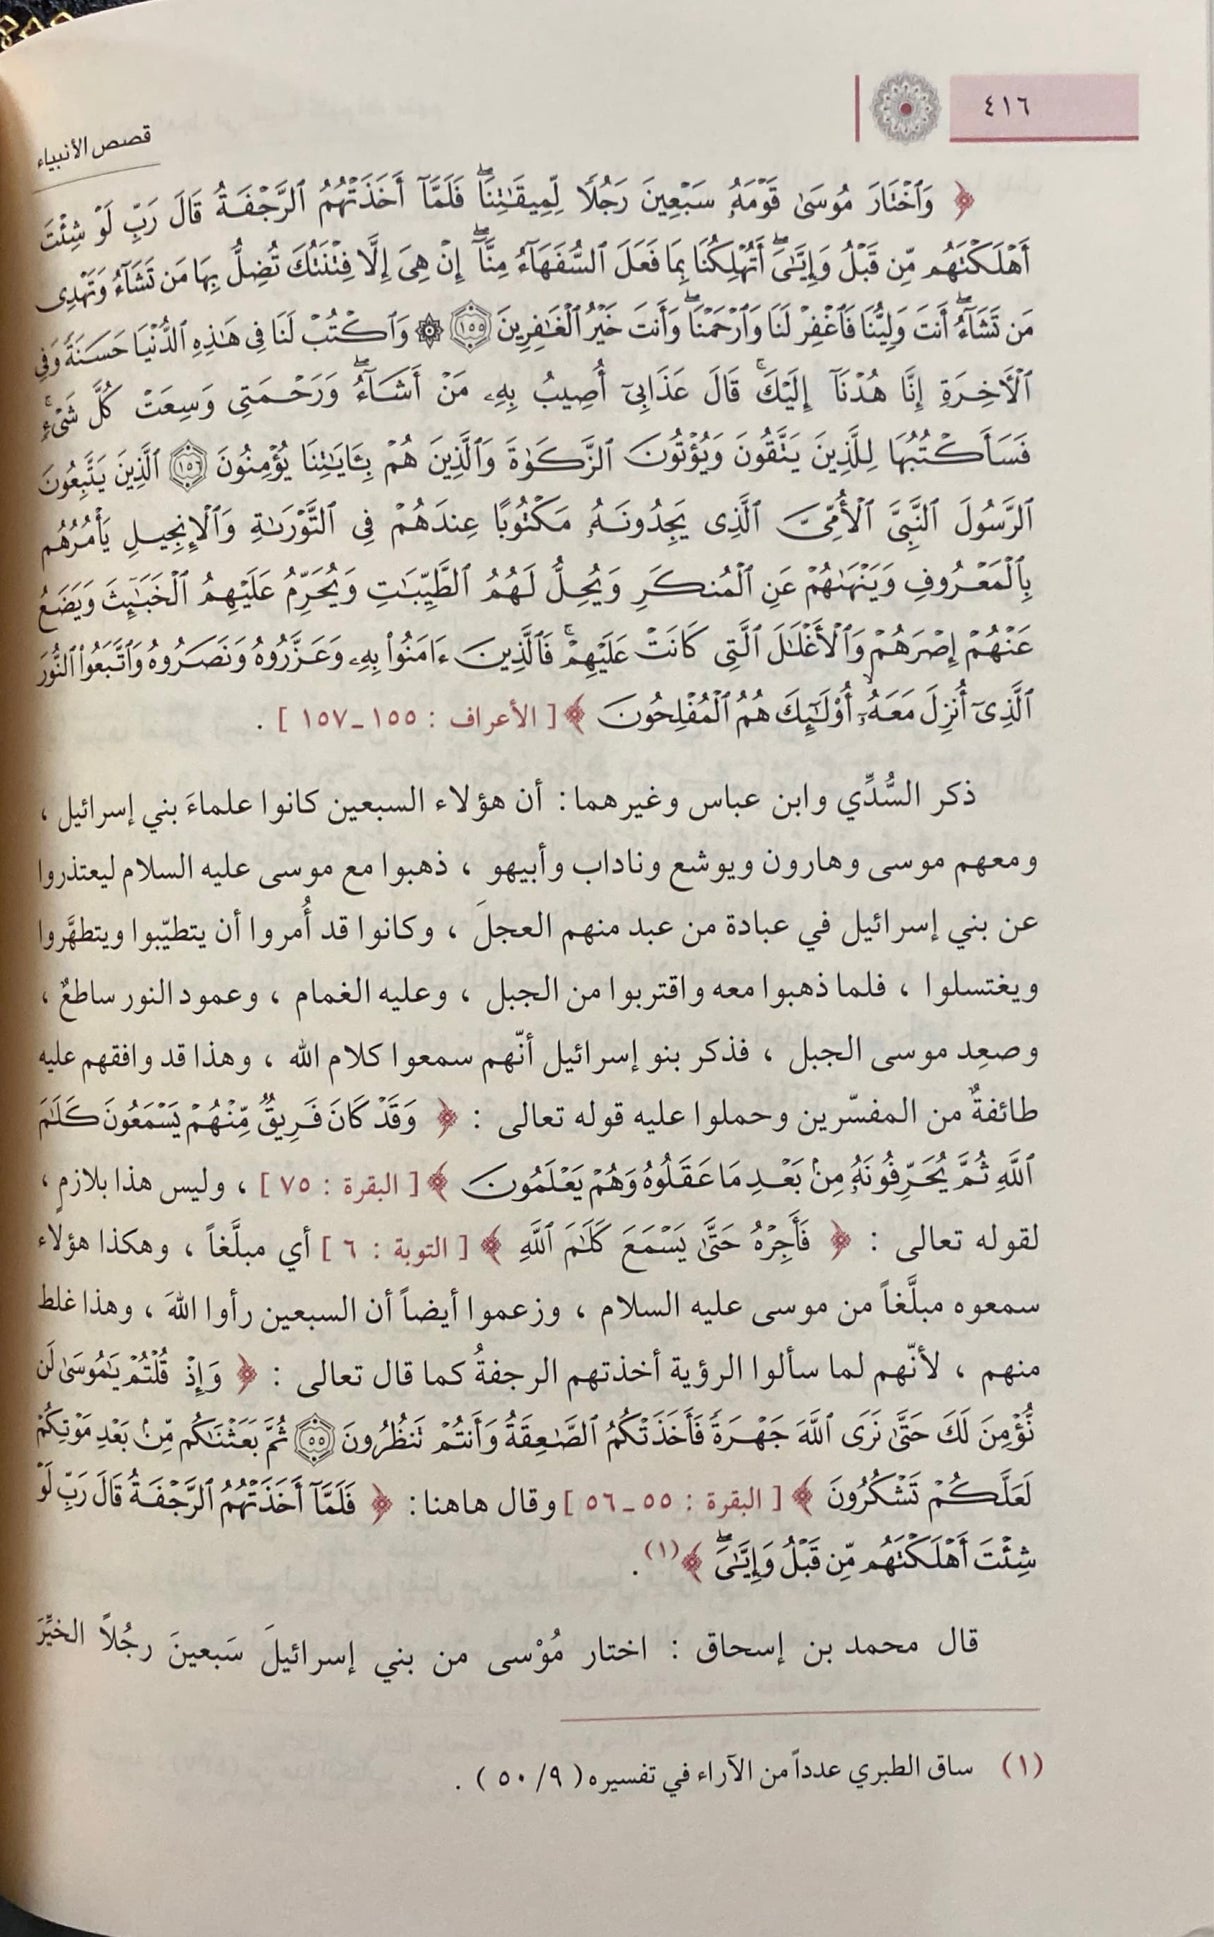 ٤١٦
قصص الأنبياء
﴿ وَٱخْتَارَ مُوسَىٰ قَوْمَهُۥ سَبْعِينَ رَجُلًا لِّمِيقَـٰتِنَا ۖ فَلَمَّآ أَخَذَتْهُمُ ٱلرَّجْفَةُ قَالَ رَبِّ لَوْ شِئْتَ
أَهْلَكْتَهُم مِّن قَبْلُ وَإِيَّـٰىَ ۖ أَتُهْلِكُنَا بِمَا فَعَلَ ٱلسُّفَهَآءُ مِنَّآ ۖ إِنْ هِىَ إِلَّا فِتْنَتُكَ تُضِلُّ بِهَا مَن تَشَآءُ وَتَهْدِى
مَن تَشَآءُ ۖ أَنتَ وَلِيُّنَا فَٱغْفِرْ لَنَا وَٱرْحَمْنَا ۖ وَأَنتَ خَيْرُ ٱلْغَـٰفِرِينَ ١٥٥ ۞ وَٱكْتُبْ لَنَا فِى هَـٰذِهِ ٱلدُّنْيَا حَسَنَةً وَفِى
ٱلْـَٔاخِرَةِ إِنَّا هُدْنَآ إِلَيْكَ ۚ قَالَ عَذَابِىٓ أُصِيبُ بِهِۦ مَنْ أَشَآءُ ۖ وَرَحْمَتِى وَسِعَتْ كُلَّ شَىْءٍ ۚ
فَسَأَكْتُبُهَا لِلَّذِينَ يَتَّقُونَ وَيُؤْتُونَ ٱلزَّكَوٰةَ وَٱلَّذِينَ هُم بِـَٔايَـٰتِنَا يُؤْمِنُونَ ١٥٦ ٱلَّذِينَ يَتَّبِعُونَ
ٱلرَّسُولَ ٱلنَّبِىَّ ٱلْأُمِّىَّ ٱلَّذِى يَجِدُونَهُۥ مَكْتُوبًا عِندَهُمْ فِى ٱلتَّوْرَىٰةِ وَٱلْإِنجِيلِ يَأْمُرُهُم
بِٱلْمَعْرُوفِ وَيَنْهَىٰهُمْ عَنِ ٱلْمُنكَرِ وَيُحِلُّ لَهُمُ ٱلطَّيِّبَـٰتِ وَيُحَرِّمُ عَلَيْهِمُ ٱلْخَبَـٰٓئِثَ وَيَضَعُ
عَنْهُمْ إِصْرَهُمْ وَٱلْأَغْلَـٰلَ ٱلَّتِى كَانَتْ عَلَيْهِمْ ۚ فَٱلَّذِينَ ءَامَنُوا۟ بِهِۦ وَعَزَّرُوهُ وَنَصَرُوهُ وَٱتَّبَعُوا۟ ٱلنُّورَ
ٱلَّذِىٓ أُنزِلَ مَعَهُۥٓ ۙ أُو۟لَـٰٓئِكَ هُمُ ٱلْمُفْلِحُونَ ﴾ [ الأعراف : ١٥٥ ـ ١٥٧ ] .
ذكر السُّدِّي وابن عباس وغيرهما : أن هؤلاء السبعين كانوا علماءَ بني إسرائيل ،
ومعهم موسى وهارون ويوشع وناداب وأبيهو ، ذهبوا مع موسى عليه السلام ليعتذروا
عن بني إسرائيل في عبادة من عبد منهم العجلَ ، وكانوا قد أُمروا أن يتطيّبوا ويتطهَّروا
ويغتسلوا ، فلما ذهبوا معه واقتربوا من الجبل ، وعليه الغمام ، وعمود النور ساطعٌ ،
وصعِد موسى الجبل ، فذكر بنو إسرائيل أنّهم سمعوا كلام الله ، وهذا قد وافقهم عليه
طائفةٌ من المفسّرين وحملوا عليه قوله تعالى : ﴿ وَقَدْ كَانَ فَرِيقٌ مِّنْهُمْ يَسْمَعُونَ كَلَـٰمَ
ٱللَّهِ ثُمَّ يُحَرِّفُونَهُۥ مِنۢ بَعْدِ مَا عَقَلُوهُ وَهُمْ يَعْلَمُونَ ﴾ [ البقرة : ٧٥ ] ، وليس هذا بلازمٍ ،
لقوله تعالى : ﴿ فَأَجِرْهُ حَتَّىٰ يَسْمَعَ كَلَـٰمَ ٱللَّهِ ﴾ [ التوبة : ٦ ] أي مبلَّغاً ، وهكذا هؤلاء
سمعوه مبلَّغاً من موسى عليه السلام ، وزعموا أيضاً أن السبعين رأوا اللهَ ، وهذا غلط
منهم ، لأنّهم لما سألوا الرؤية أخذتهم الرجفةُ كما قال تعالى : ﴿ وَإِذْ قُلْتُمْ يَـٰمُوسَىٰ لَن
نُّؤْمِنَ لَكَ حَتَّىٰ نَرَى ٱللَّهَ جَهْرَةً فَأَخَذَتْكُمُ ٱلصَّـٰعِقَةُ وَأَنتُمْ تَنظُرُونَ ٥٥ ثُمَّ بَعَثْنَـٰكُم مِّنۢ بَعْدِ مَوْتِكُمْ
لَعَلَّكُمْ تَشْكُرُونَ ﴾ [ البقرة : ٥٥ ـ ٥٦ ] وقال هاهنا : ﴿ فَلَمَّآ أَخَذَتْهُمُ ٱلرَّجْفَةُ قَالَ رَبِّ لَوْ
شِئْتَ أَهْلَكْتَهُم مِّن قَبْلُ وَإِيَّـٰىَ ۖ ﴾(١) .
قال محمد بن إسحاق : اختار مُوْسى من بني إسرائيلَ سَبعينَ رجُلاً الخيِّرَ
(١) ساق الطبري عدداً من الآراء في تفسيره ( ٩/ ٥٠ ) .